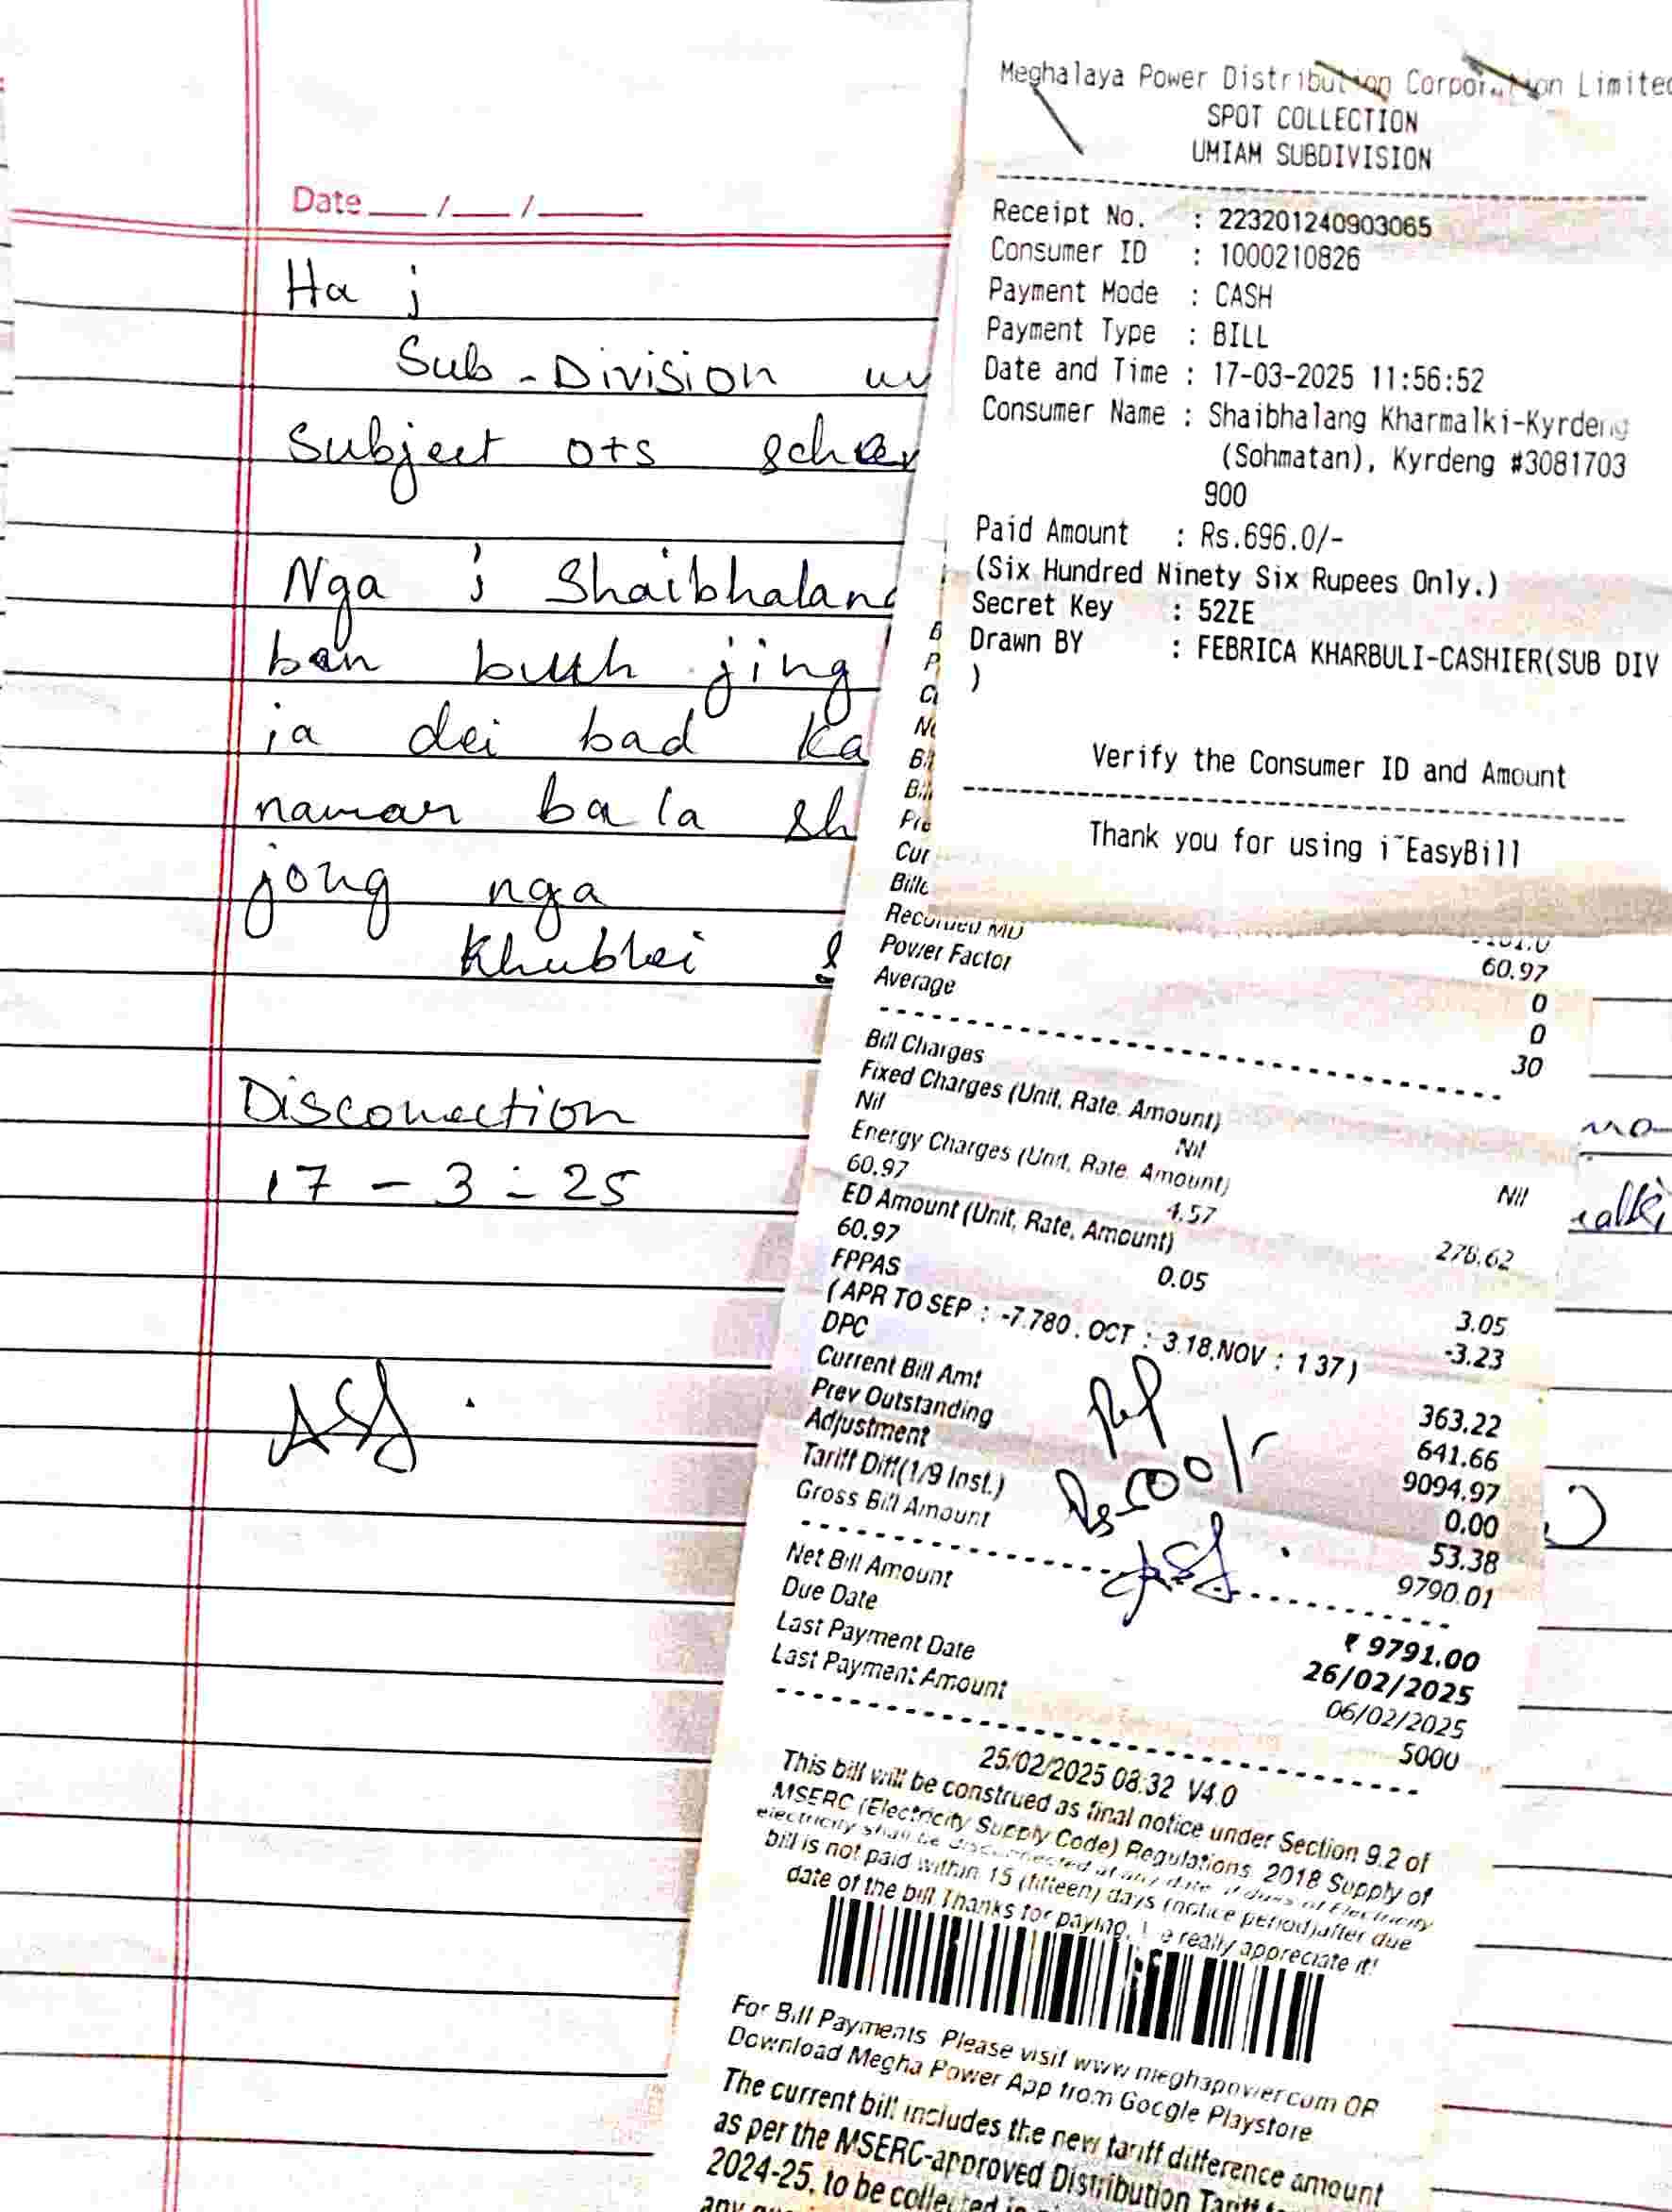 Date ___ /___ /_____
Ha j
Sub-Division
Subject ots
Nga j Shaibhalang
ban buh jing
ia dei bad ka
naman ba la sh
jong nga
Khublei
Disconection
17 - 3 - 25
Meghalaya Power Distribution Corporation Limited
SPOT COLLECTION
UMIAM SUBDIVISION
Receipt No. : 223201240903065
Consumer ID : 1000210826
Payment Mode : CASH
Payment Type : BILL
Date and Time : 17-03-2025 11:56:52
Consumer Name : Shaibhalang Kharmalki-Kyrdeng
(Sohmatan), Kyrdeng #3081703
900
Paid Amount : Rs.696.0/-
(Six Hundred Ninety Six Rupees Only.)
Secret Key : 52ZE
Drawn BY : FEBRICA KHARBULI-CASHIER(SUB DIV
)
Verify the Consumer ID and Amount
Thank you for using i~EasyBill
Recorded MD 60.97
Power Factor 0
Average 0
30
Bill Charges
Fixed Charges (Unit, Rate, Amount)
Nil Nil Nil
Energy Charges (Unit, Rate, Amount)
60.97 4.57 278.62
ED Amount (Unit, Rate, Amount)
60.97 0.05 3.05
FPPAS -3.23
(APR TO SEP : -7.780, OCT : 3.18,NOV : 1.37)
DPC 363.22
Current Bill Amt 641.66
Prev Outstanding 9094.97
Adjustment 0.00
Tariff Diff(1/9 Inst.) 53.38
Gross Bill Amount 9790.01
Net Bill Amount ₹ 9791.00
Due Date 26/02/2025
Last Payment Date 06/02/2025
Last Payment Amount 5000
25/02/2025 08:32 V4.0
This bill will be construed as final notice under Section 9.2 of
MSERC (Electricity Supply Code) Regulations, 2018 Supply of
electricity shall be disconnected at any date, if dues of Electricity
bill is not paid within 15 (fifteen) days (notice period)after due
date of the bill Thanks for paying, We really appreciate it!
For Bill Payments Please visit www.meghapower.com OR
Download Megha Power App from Google Playstore
The current bill includes the new tariff difference amount
as per the MSERC-approved Distribution Tariff
2024-25, to be collected